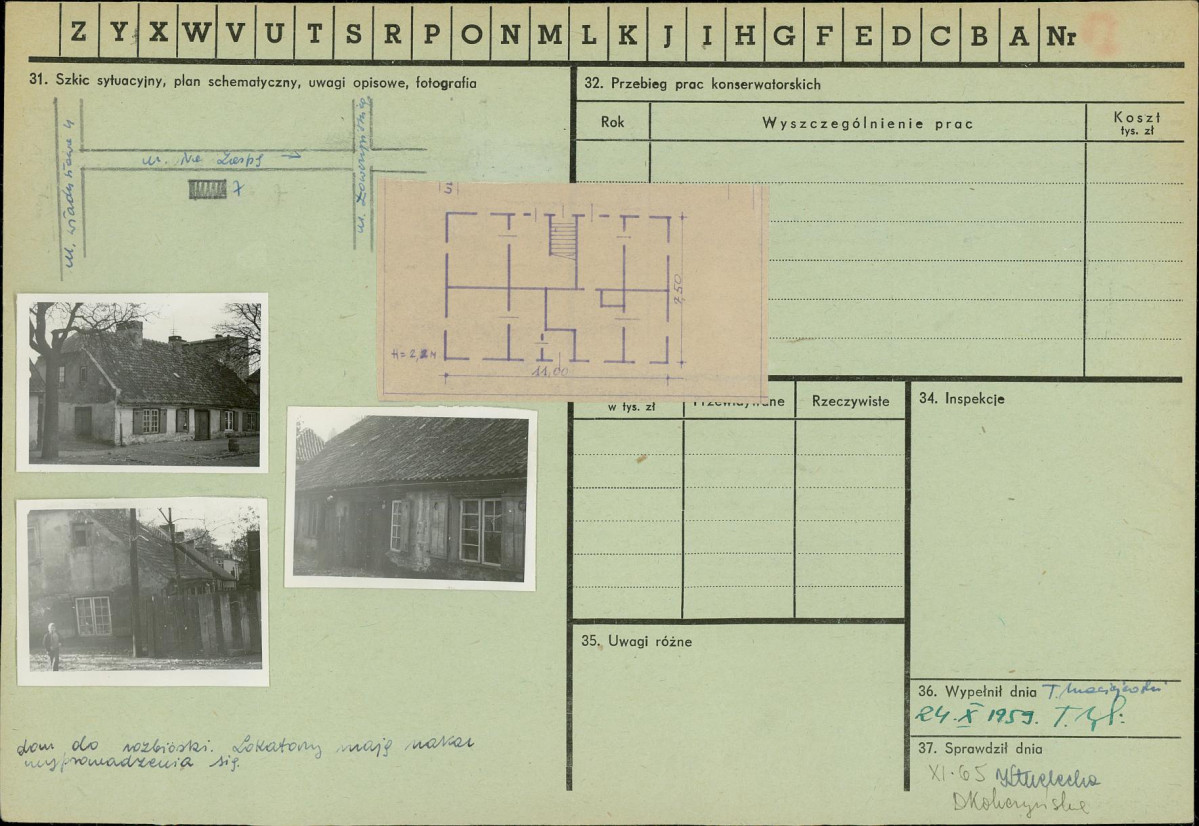 Z Y X W V U T S R P O N M L K J I H G F E D C B A Nr
31. Szkic sytuacyjny, plan schematyczny, uwagi opisowe, fotografia
ul. Na Zaspę →
7
H = 2,2 M
11.00
7,50
dom do rozbiórki. Lokatorzy mają nakaz
wyprowadzenia się.
32. Przebieg prac konserwatorskich
Rok
Wyszczególnienie prac
Koszt
tys. zł
w tys. zł
Przewidywane
Rzeczywiste
34. Inspekcje
35. Uwagi różne
36. Wypełnił dnia T. Maciejewski
24.X 1959.
37. Sprawdził dnia
XI.65